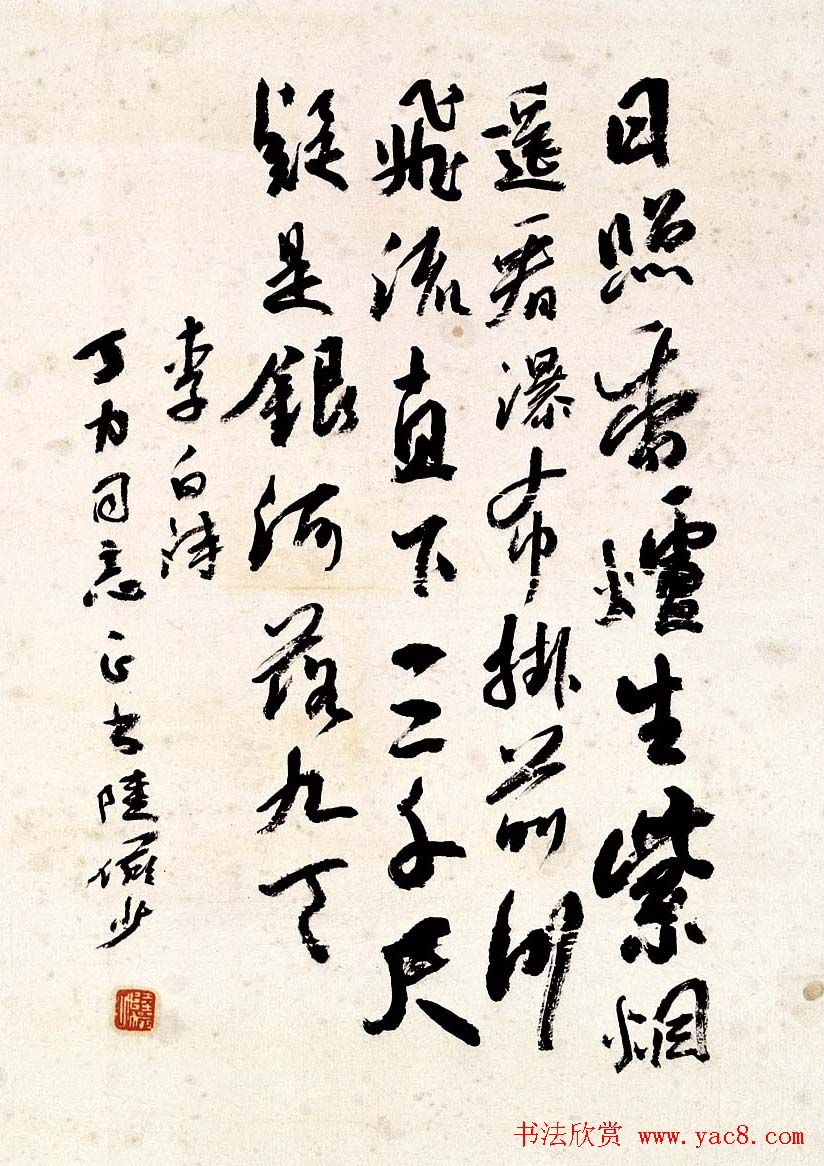 日照香爐生紫烟
遥看瀑布掛前川
飛流直下三千尺
疑是銀河落九天
李白詩
丁力同志正书陸儼少
书法欣赏 www.yac8.com